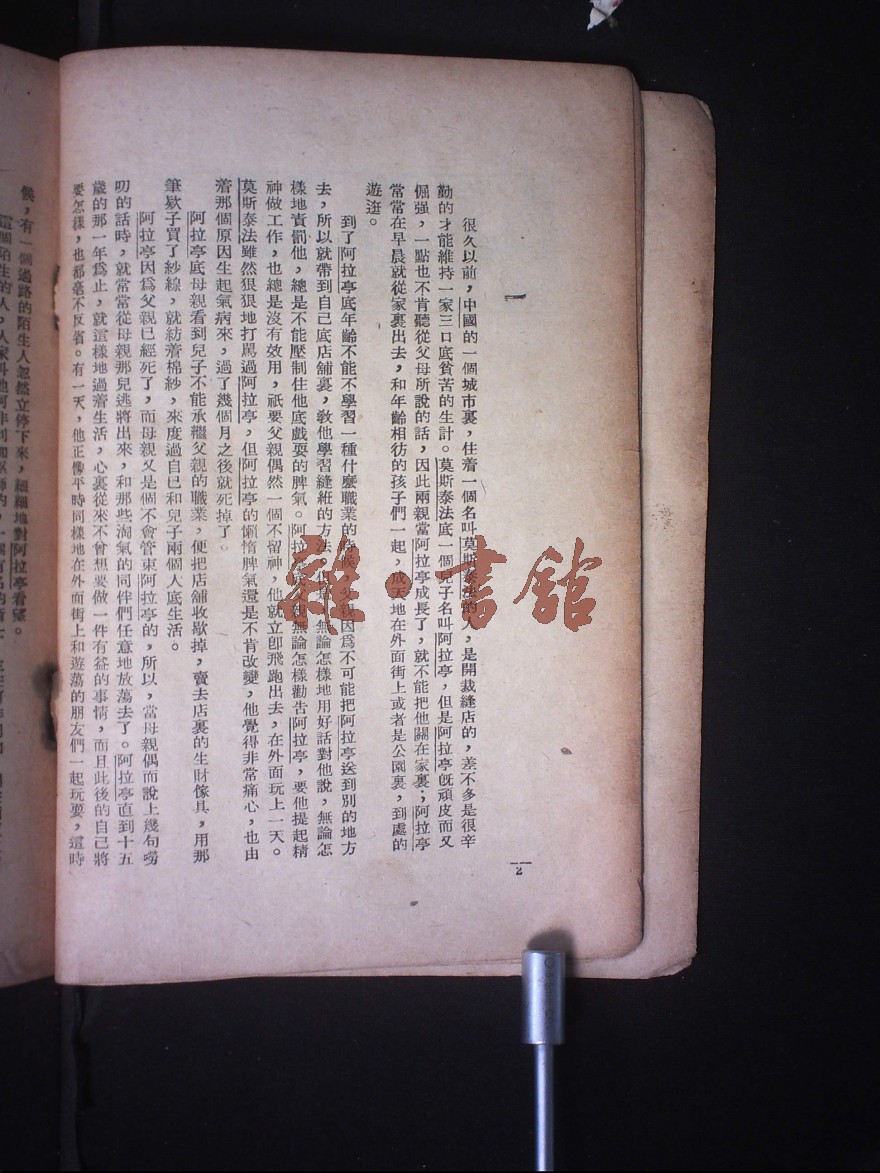 一
很久以前，中國的一個城市裏，住着一個名叫莫斯泰法的人，是開裁縫店的，差不多是很辛
勤的才能維持一家三口底貧苦的生計。莫斯泰法底一個兒子名叫阿拉亭，但是阿拉亭旣頑皮而又
倔强，一點也不肯聽從父母所說的話，因此兩親當阿拉亭成長了，就不能把他關在家裏；阿拉亭
常常在早晨就從家裏出去，和年齡相彷的孩子們一起，成天地在外面街上或者是公園裏，到處的
遊逛。
到了阿拉亭底年齡不能不學習一種什麼職業的時候，父親因爲不可能把阿拉亭送到別的地方
去，所以就帶到自己底店舖裏，敎他學習縫紝的方法。但是，無論怎樣地用好話對他說，無論怎
樣地責罰他，總是不能壓制住他底戲耍的脾氣。阿拉亭底父親無論怎樣勸告阿拉亭，要他提起精
神做工作，也總是沒有效用，祇要父親偶然一個不留神，他就立卽飛跑出去，在外面玩上一天。
莫斯泰法雖然狠狠地打罵過阿拉亭，但阿拉亭的懶惰脾氣還是不肯改變，他覺得非常痛心，也由
着那個原因生起氣病來，過了幾個月之後就死掉了。
阿拉亭底母親看到兒子不能承繼父親的職業，便把店舖收歇掉，賣去店裏的生財傢具，用那
筆欵子買了紗線，就紡着棉紗，來度過自己和兒子兩個人底生活。
阿拉亭因爲父親已經死了，而母親又是個不會管束阿拉亭的，所以，當母親偶而說上幾句嘮
叨的話時，就常常從母親那兒逃將出來，和那些淘氣的同伴們任意地放蕩去了。阿拉亭直到十五
歲的那一年爲止，就這樣地過着生活，心裏從來不曾想要做一件有益的事情，而且此後的自己將
要怎樣，也都毫不反省。有一天，他正像平時同樣地在外面街上和遊蕩的朋友們一起玩耍，這時
候，有一個過路的陌生人忽然立停下來，細細地對阿拉亭看望。
這個陌生的人，人家叫他阿非利加巫師的，一個有名的
2
雜·書舘